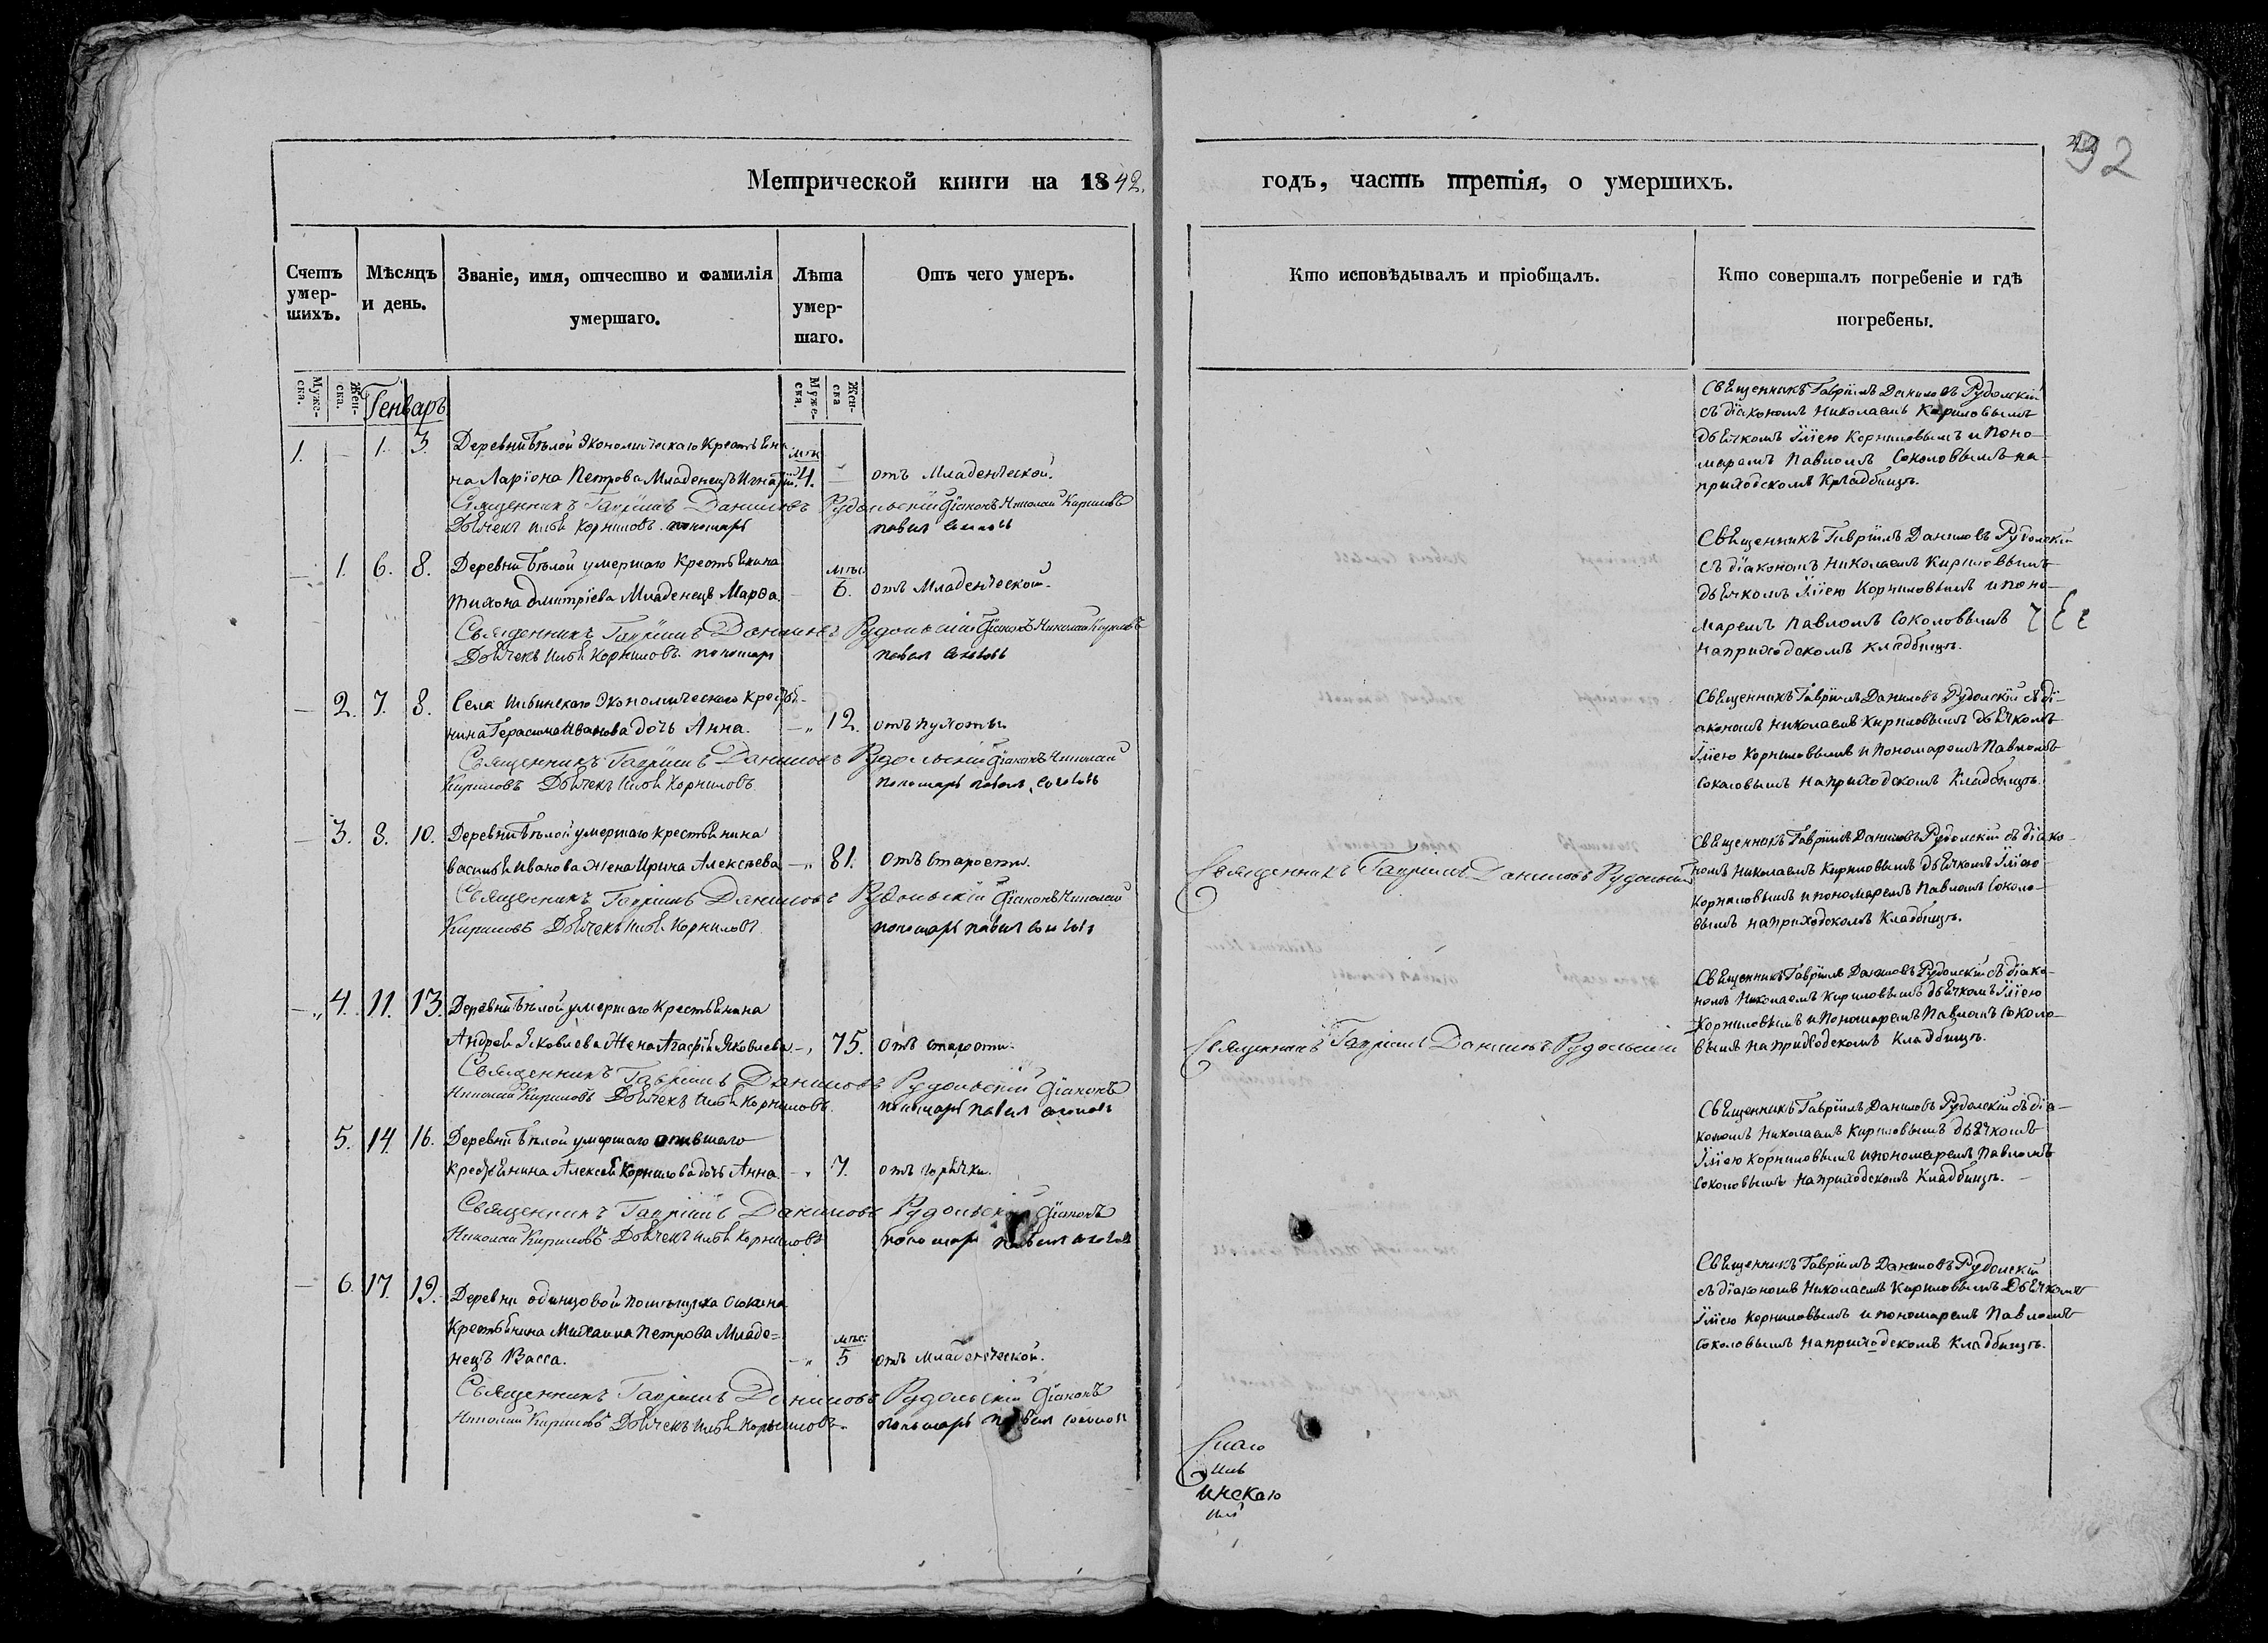 92
Метрической книги на 1842.
годъ, часть третія, о умершихъ.
Счетъ умер-шихъ.
Мѣсяцъ и день.
Званіе, имя, отчество и фамилія умершаго.
Лѣта умер-шаго.
Отъ чего умеръ.
Кто исповѣдывалъ и пріобщалъ.
Кто совершалъ погребеніе и гдѣ погребены.
Муже-ска.
Жен-ска.
Муже-ска.
Жен-ска
Генварь
1. — 1. 3. Деревни Бѣлой Экономическаго Крестьяни
на Ларіона Петрова Младенецъ Игнатій. 4. — отъ Младенческой.
Священникъ Гавріилъ Даниловъ Рудольскій Діаконъ Николай Кириловъ
Дьячекъ Илья Корниловъ. пономарь Павел Соколовъ
Священникъ Гавріилъ Даниловъ Рудольскій
съ діакономъ Николаемъ Кириловымъ
дьячкомъ Іліею Корниловымъ и Поно-
маремъ Павломъ Соколовымъ на
приходскомъ Кладбищѣ.
— 1. 6. 8. Деревни Бѣлой умершаго Крестьянина
Тихона Дмитріева Младенецъ Марѳа. — мѣс. 6. отъ Младенческой.
Священникъ Гавріилъ Даниловъ Рудольскій Діаконъ Николай Кириловъ
Дьячекъ Илья Корниловъ. пономарь Павел Соколовъ
Священникъ Гавріилъ Даниловъ Рудольскій
съ діакономъ Николаемъ Кириловымъ
дьячкомъ Іліею Корниловымъ и поно-
маремъ Павломъ Соколовымъ
на приходскомъ кладбищѣ.
— 2. 7. 8. Села Ильинскаго Экономическаго Кресть-
нина Герасима Иванова дочь Анна. — 12. отъ
Священникъ Гавріилъ Даниловъ Рудольскій Діаконъ Николай
Кириловъ Дьячекъ Илья Корниловъ. пономарь Павел Соколовъ
Священникъ Гавріилъ Даниловъ Рудольскій съ ді-
акономъ Николаемъ Кириловымъ дьячкомъ
Іліею Корниловымъ и Пономаремъ Павломъ
Соколовымъ на приходскомъ Кладбищѣ.
— 3. 8. 10. Деревни Бѣлой умершаго крестьянина
Василья Иванова Жена Ирина Алексѣева — 81. отъ Старости.
Священникъ Гавріилъ Даниловъ Рудольскій Діаконъ Николай
Кириловъ Дьячекъ Илья Корниловъ. пономарь Павел Соколовъ
Священникъ Гавріилъ Даниловъ Рудольскій
Священникъ Гавріилъ Даниловъ Рудольскій съ діако-
номъ Николаемъ Кириловымъ дьячкомъ Іліею
Корниловымъ и пономаремъ Павломъ Соколо-
вымъ на приходскомъ Кладбищѣ.
— 4. 11. 13. Деревни Бѣлой умершаго Крестьянина
Андрея Яковлева Жена Агафія Яковлева — 75. отъ старости.
Священникъ Гавріилъ Даниловъ Рудольскій Діаконъ
Николай Кириловъ Дьячекъ Илья Корниловъ. пономарь Павел Соколовъ
Священникъ Гавріилъ Даниловъ Рудольскій
Священникъ Гавріилъ Даниловъ Рудольскій съ діако-
номъ Николаемъ Кириловымъ дьячкомъ Іліею
Корниловымъ и Пономаремъ Павломъ Соколо-
вымъ на приходскомъ Кладбищѣ.
5. 14. 16. Деревни Бѣлой умершаго
крестьянина Алексея Корнилова дочь Анна — 7. отъ горячки.
Священникъ Гавріилъ Даниловъ Рудольскій Діаконъ
Николай Кириловъ Дьячекъ Илья Корниловъ пономарь Павел Соколовъ
Священникъ Гавріилъ Даниловъ Рудольскій съ діа-
кономъ Николаемъ Кириловымъ дьячкомъ
Іліею Корниловымъ и пономаремъ Павломъ
Соколовымъ на приходскомъ Кладбищѣ.
— 6. 17. 19. Деревни Одинцовой помѣщика
Крестьянина Михаила Петрова Младе-
нецъ Васса. — мѣс. 5 отъ Младенческой.
Священникъ Гавріилъ Даниловъ Рудольскій Діаконъ
Николай Кириловъ Дьячекъ Илья Корниловъ. пономарь Павел Соколовъ
Священникъ Гавріилъ Даниловъ Рудольскій
съ діакономъ Николаемъ Кириловымъ Дьячкомъ
Іліею Корниловымъ и пономаремъ Павломъ
Соколовымъ на приходскомъ Кладбищѣ.
Иль
инскаго